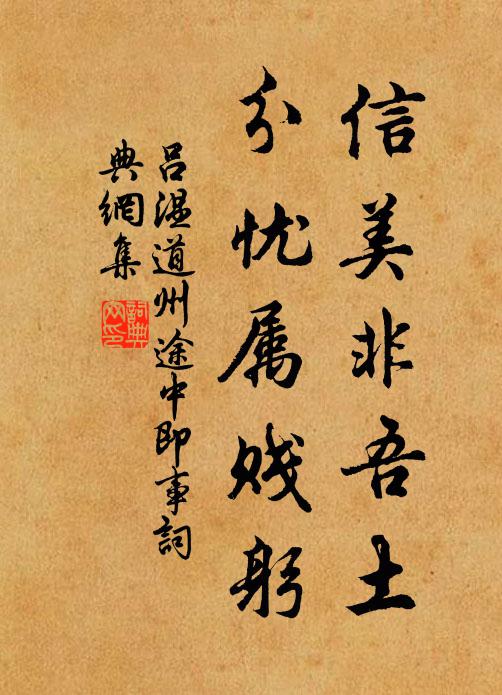 信美非吾土
分忧属贱躬
吕温道州途中即事词
典網集
詞典
网印